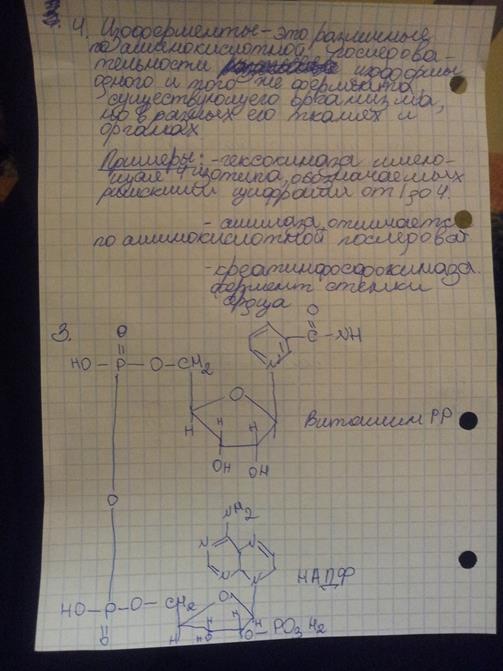 4. Изоферменты - это различные
по аминокислотной последова-
тельности изоформы
одного и того же фермента,
существующего организма,
но в разных его тканях и
органах
Примеры: - гексокиназа имею-
щая 4 изотипа, обозначаемых
римскими цифрами от I до 4.
- амилаза, отличается
по аминокислотной последоват
- креатинфосфокиназа.
фермент стенки
сердца
3.
O
O
HO - P - O - CH2
C - NH
N
O
H H H
OH OH
Витамин PP
O
NH2
N N
N N
НАДФ
HO - P - O - CH2
O
O
H H H H
HO O - PO3H2